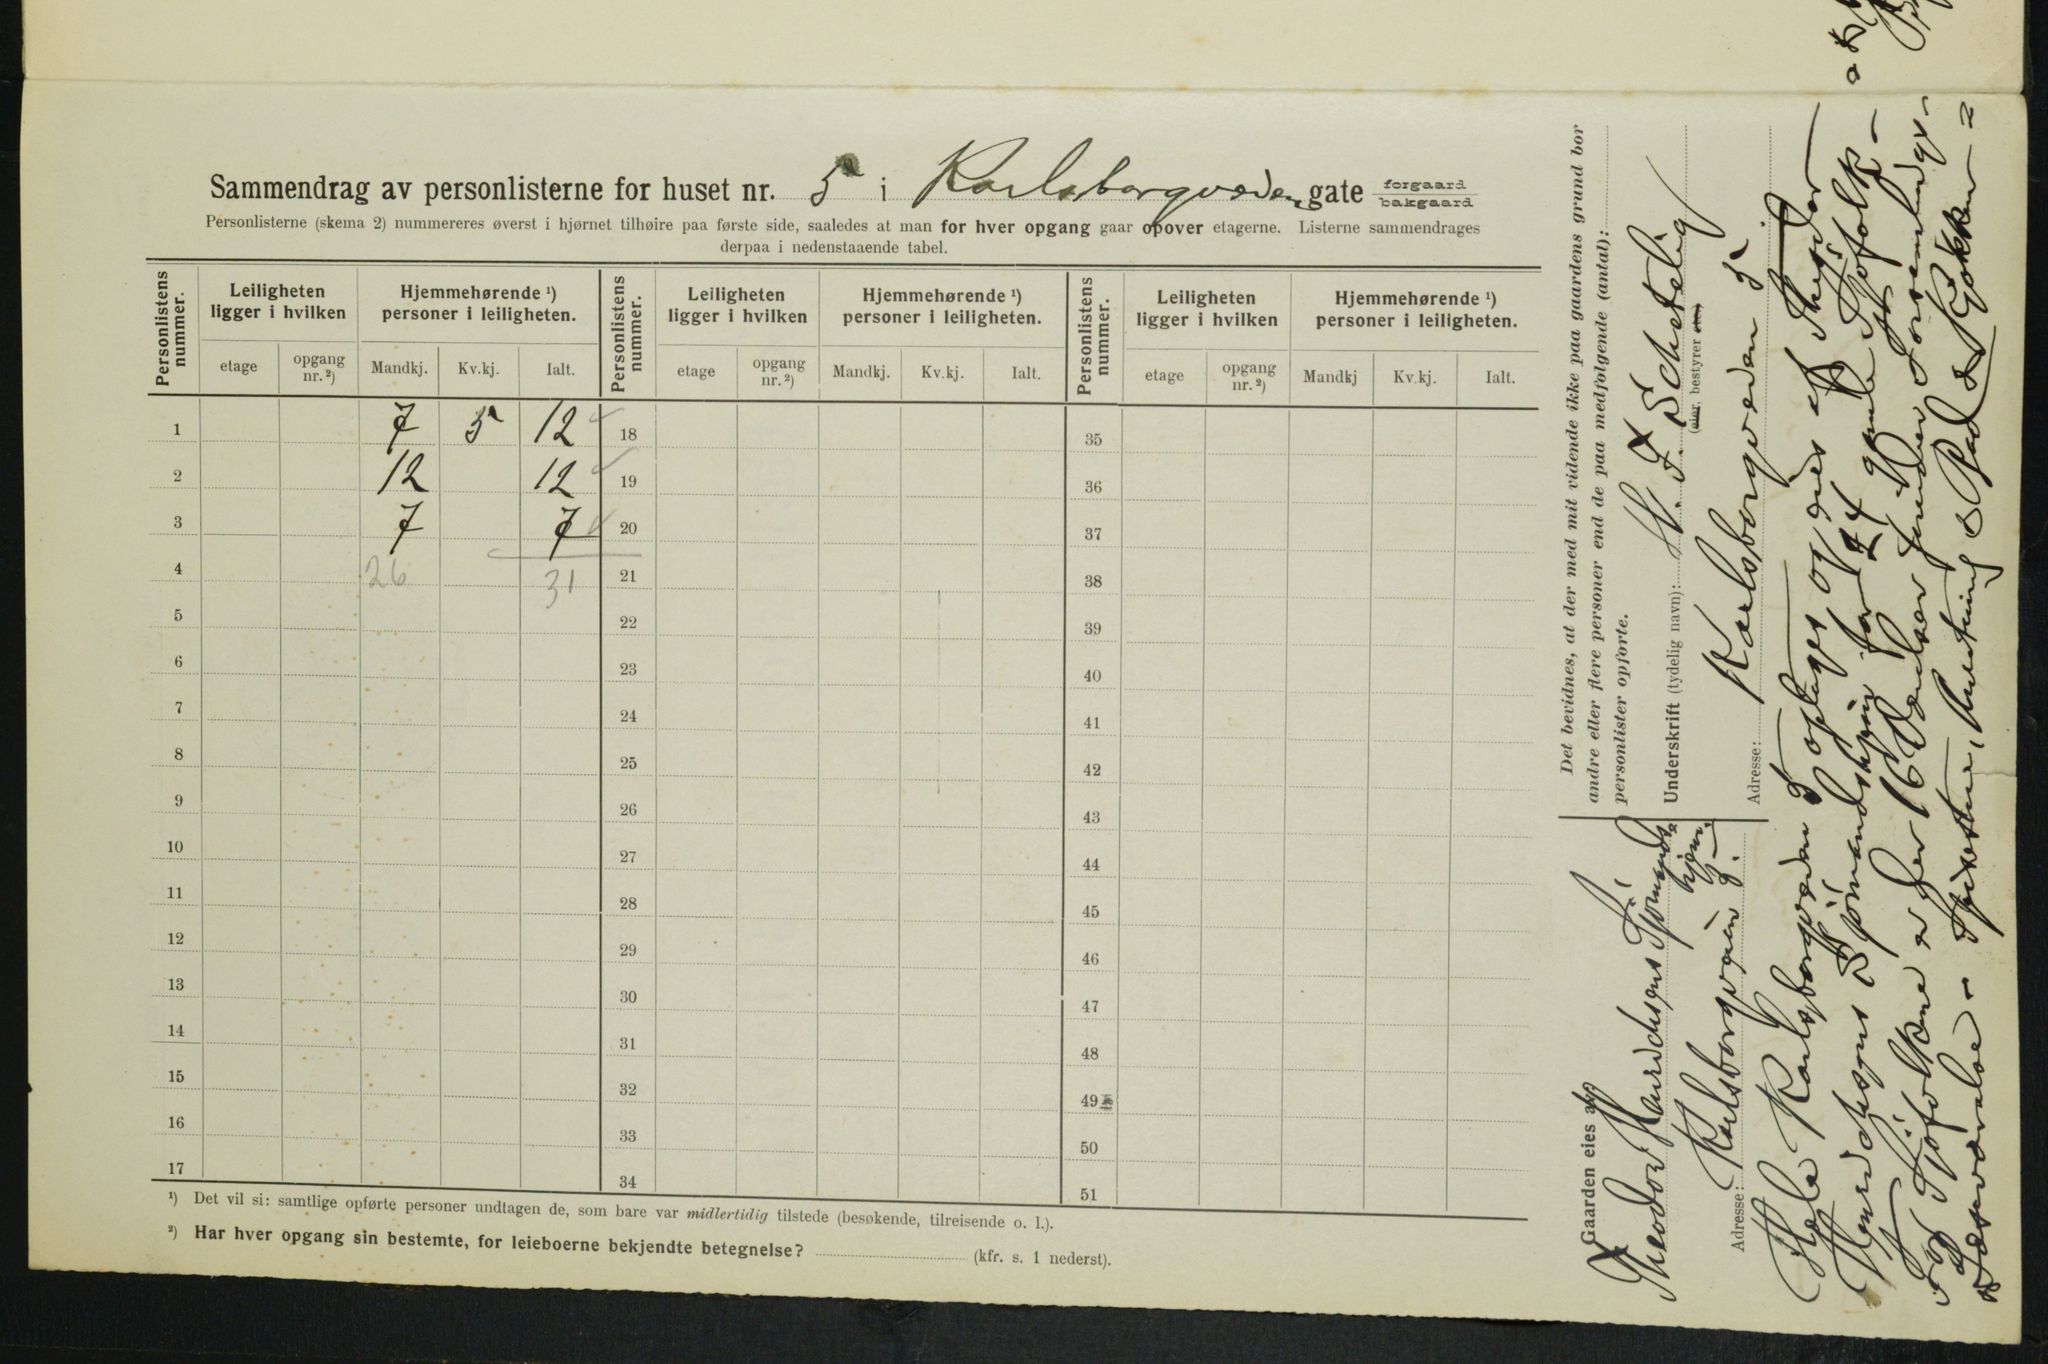 Sammendrag av personlisterne for huset nr. 5 i Karlsborgveien gate forgaard bakgaard
Personlisterne (skema 2) nummereres øverst i hjørnet tilhøire paa første side, saaledes at man for hver opgang gaar opover etagerne. Listerne sammendrages
derpaa i nedenstaaende tabel.
Personlistens nummer. Leiligheten ligger i hvilken Hjemmehørende ¹) personer i leiligheten. Personlistens nummer. Leiligheten ligger i hvilken Hjemmehørende ¹) personer i leiligheten. Personlistens nummer. Leiligheten ligger i hvilken Hjemmehørende ¹) personer i leiligheten.
etage opgang nr. ²) Mandkj. Kv.kj. Ialt. etage opgang nr. ²) Mandkj. Kv.kj. Ialt. etage opgang nr. ²) Mandkj Kv.kj. Ialt.
1 7 5 12 18 35
2 12 12 19 36
3 7 7 20 37
4 26 31 21 38
5 22 39
6 23 40
7 24 41
8 25 42
9 26 43
10 27 44
11 28 45
12 29 46
13 30 47
14 31 48
15 32 49
16 33 50
17 34 51
¹) Det vil si: samtlige opførte personer undtagen de, som bare var midlertidig tilstede (besøkende, tilreisende o. l.).
²) Har hver opgang sin bestemte, for leieboerne bekjendte betegnelse? (kfr. s. 1 nederst).
Det bevidnes, at der med mit vidende ikke paa gaardens grund bor
andre eller flere personer end de paa medfølgende (antal):
personlister opførte.
Underskrift (tydelig navn): H. F. Schetelig
(eier, bestyrer etc.)
Adresse: Karlsborgveien 5
Gaarden eies av:
Theodor Henrichsens Sjömands
hjem
Adresse: Karlsborgveien 5.
Hele Karlsborgveien 5 optages og eies af Theodor
Henrichsens Sjömandshjem for 24 gamle Sjöfolk -
For Sjöfolkene er her 16 Værelser foruden Forsamlings-
Læseværelse - Spisestue, Anretning & Bad & Kjøkken =